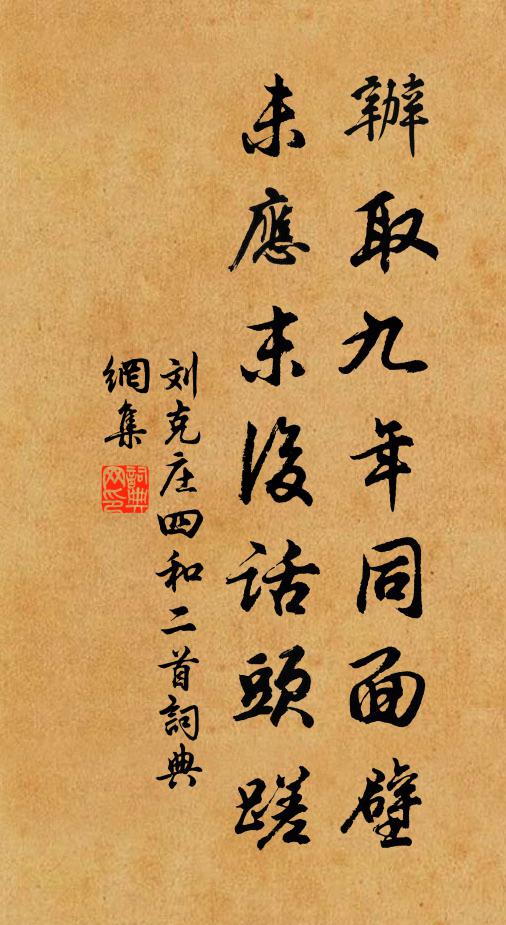 辦取九年同面壁
未應末後話頭蹉
刘克庄四和二首詞典
網集
詞典網印